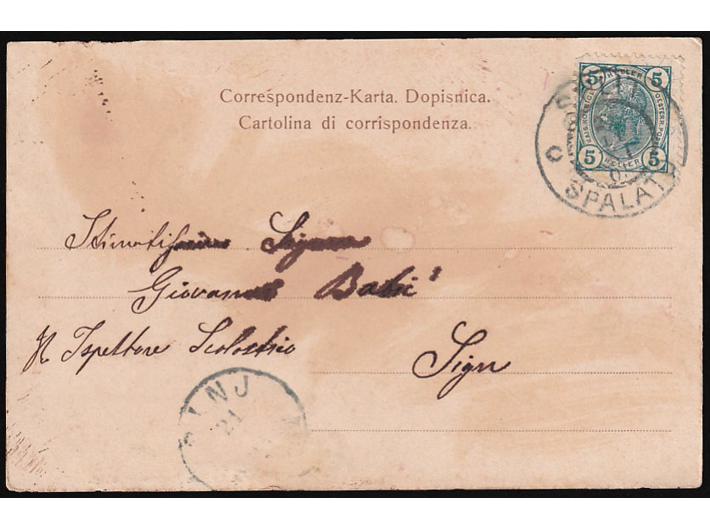 Correspondenz-Karta. Dopisnica.
Cartolina di corrispondenza.
5 HELLER 5
5 HELLER 5
SPALATO
C
Signore
Giovanni Babić
K Ispettore Scolastico
Sign
SINJ
21